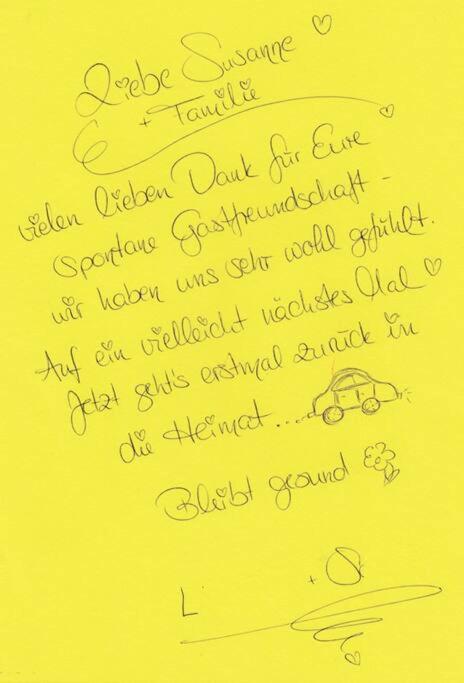 Liebe Susanne
+ Familie
vielen lieben Dank für Eure
spontane Gastfreundschaft -
wir haben uns sehr wohl gefühlt.
Auf ein vielleicht nächstes Mal
Jetzt geht's erstmal zurück in
die Heimat....
Bleibt gesund
L +